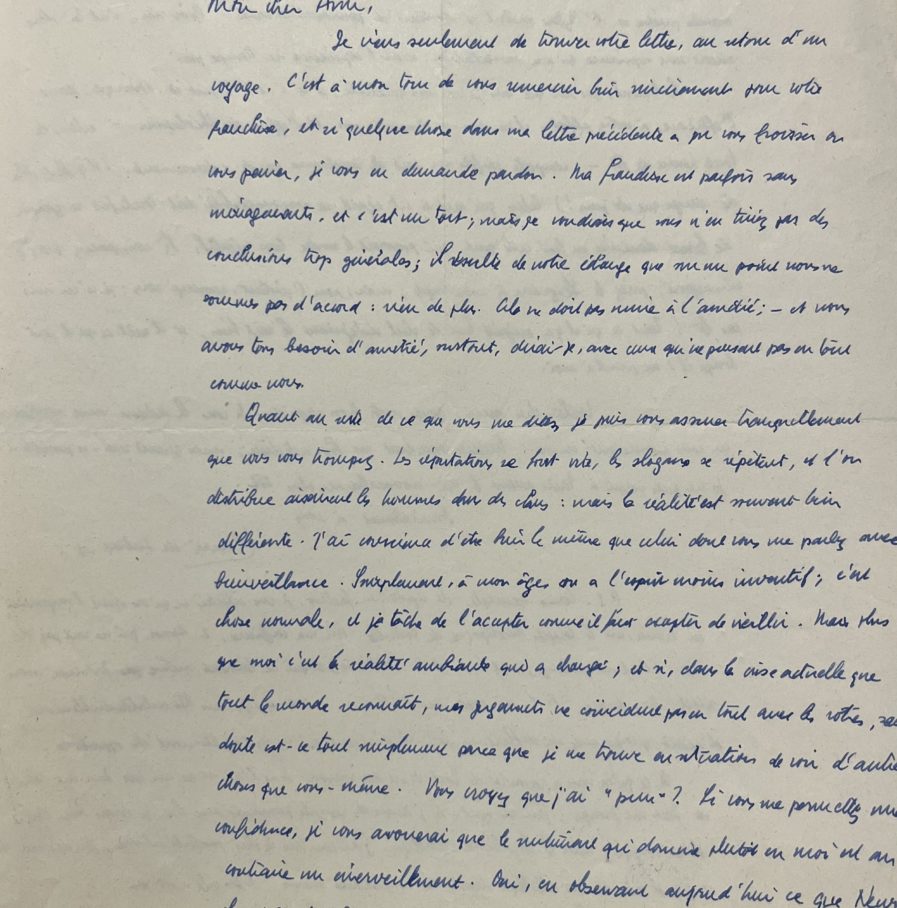 Mon cher Ami,
Je viens seulement de trouver votre lettre, au retour d'un
voyage. C'est à mon tour de vous remercier bien sincèrement pour votre
franchise, et si quelque chose dans ma lettre précédente a pu vous froisser ou
vous peiner, je vous en demande pardon. Ma franchise est parfois sans
ménagements, et c'est un tort; mais je voudrais que vous n'en tiriez pas des
conclusions trop générales; il résulte de notre échange que sur un point nous ne
sommes pas d'accord : rien de plus. Cela ne doit pas nuire à l'amitié; – et nous
avons tous besoin d'amitié, surtout, dirai-je, avec ceux qui ne pensent pas en tout
comme nous.
Quant au reste de ce que vous me dites, je puis vous assurer tranquillement
que vous vous trompez. Les réputations se font vite, les slogans se répètent, et l'on
distribue aisément les hommes dans des clans : mais la réalité est souvent bien
différente. J'ai conscience d'être bien le même que celui dont vous me parlez avec
bienveillance. Simplement, à mon âge on a l'esprit moins inventif; c'est
chose normale, et je tâche de l'accepter comme il faut accepter de vieillir. Mais plus
que moi c'est la réalité ambiante qui a changé; et si, dans la crise actuelle que
tout le monde reconnaît, mes jugements ne coïncident pas en tout avec les vôtres,
doute est-ce tout simplement parce que je me trouve en situations de voir d'autres
choses que vous-même. Vous croyez que j'ai "peur"? Si vous me permettez une
confidence, je vous avouerai que le sentiment qui domine plutôt en moi est au
contraire un émerveillement. Oui, en observant aujourd'hui ce que